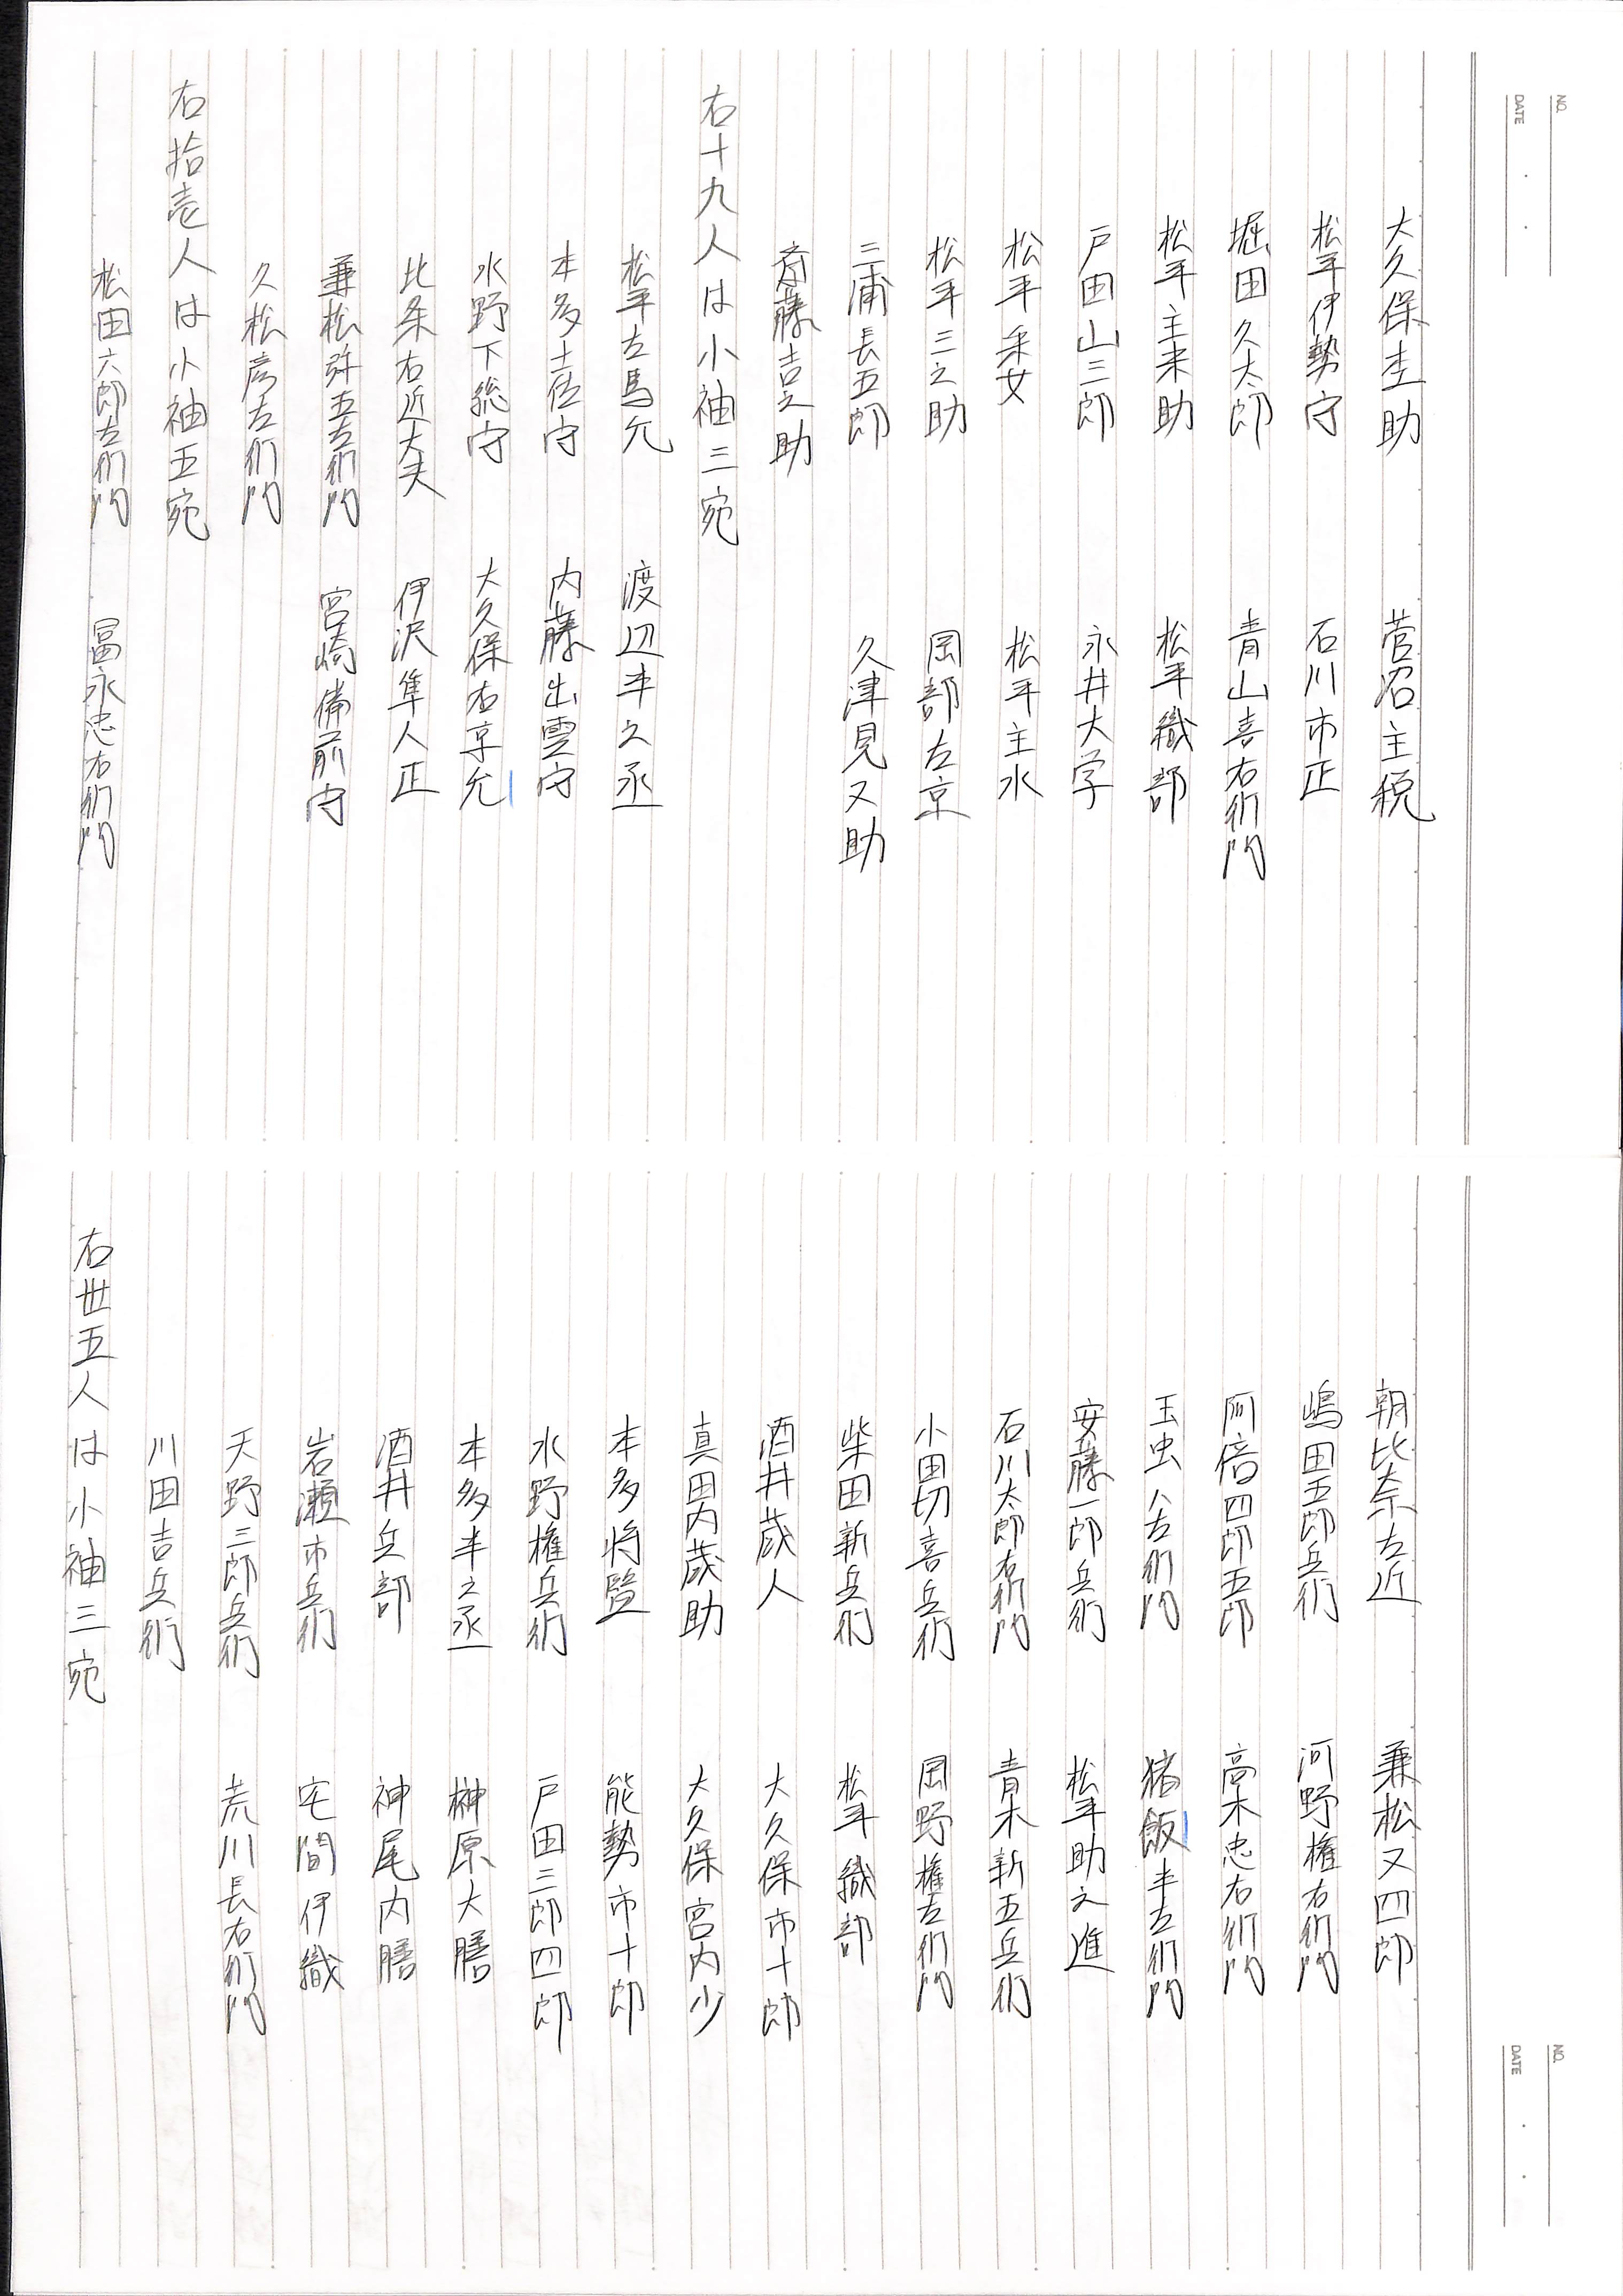 NO.
DATE
大久保杢助　菅沼主税
松平伊勢守　石川市正
堀田久太郎　青山喜右衛門
松平主来助　松平織部
戸田山三郎　永井大学
松平采女　松平主水
松平三之助　岡部左京
三浦長五郎　久津見又助
斎藤吉之助
右十九人は小袖三宛
松平左馬允　渡辺半久丞
本多土佐守　内藤出雲守
水野下総守　大久保右京允
北条右近大夫　伊沢隼人正
兼松弥五左衛門　宮崎備前守
久松彦左衛門
右拾壱人は小袖五宛
松田六郎左衛門　冨永忠右衛門
NO.
DATE
朝比奈左近　兼松又四郎
嶋田五郎兵衛　河野権右衛門
阿倍四郎五郎　高木忠右衛門
玉虫八左衛門　猪飯半左衛門
安藤一郎兵衛　松平助之進
石川太郎右衛門　青木新五兵衛
小田切喜兵衛　岡野権左衛門
柴田新兵衛　松平織部
酒井蔵人　大久保市十郎
真田内蔵助　大久保宮内少
本多将監　能勢市十郎
水野権兵衛　戸田三郎四郎
本多半之丞　榊原大膳
酒井兵部　神尾内膳
岩瀬市兵衛　宅間伊織
天野三郎兵衛　荒川長右衛門
川田吉兵衛
右丗五人は小袖三宛